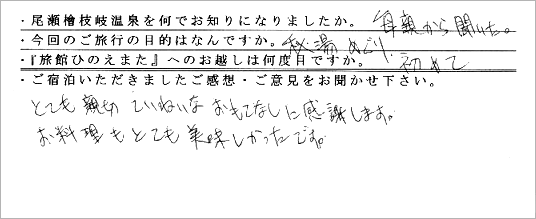 ・尾瀬檜枝岐温泉を何でお知りになりましたか。 母親から聞いた。
・今回のご旅行の目的はなんですか。 秘湯めぐり
・『旅館ひのえまた』へのお越しは何度目ですか。 初めて
・ご宿泊いただきましたご感想・ご意見をお聞かせ下さい。
とても親切 ていねいな おもてなしに感謝します。
お料理もとても美味しかったです。